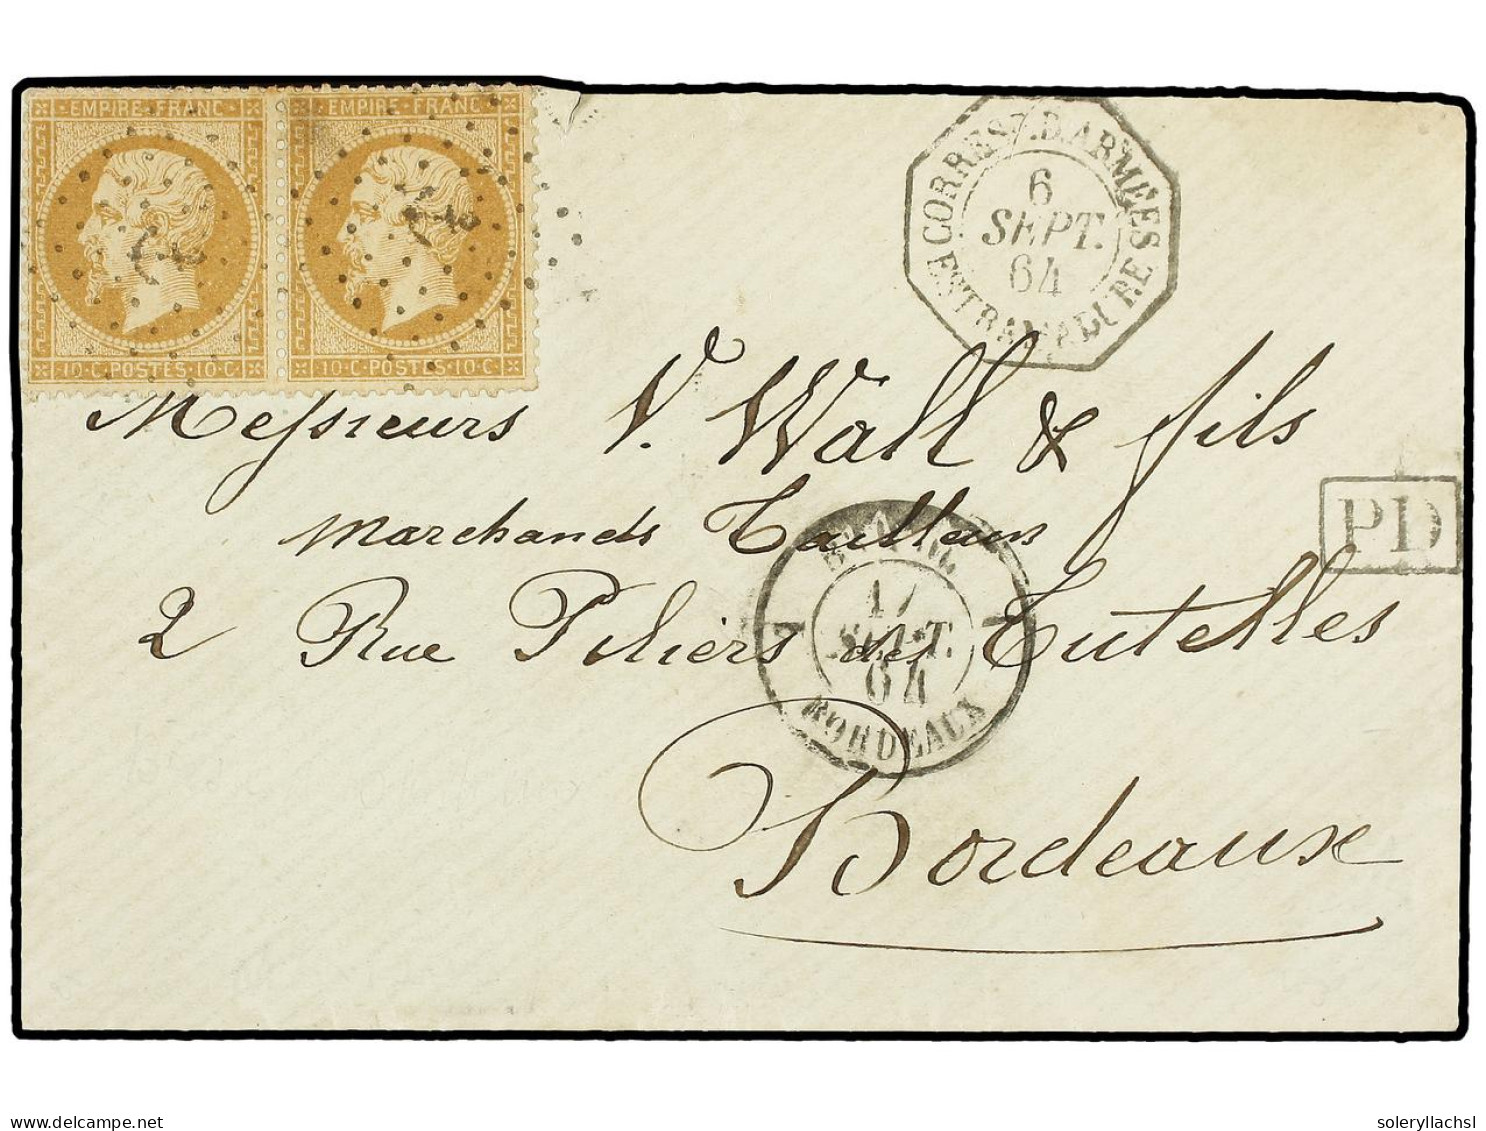 EMPIRE FRANC EMPIRE FRANC
10·C POSTES 10·C 10·C POSTES 10·C
CORRESP.D.ARMÉES
6
SEPT.
64
ESTRAMADURE
Messieurs V. Wall & fils
PD
Marchands Tailleurs
2 Rue Piliers des Tutelles
SEPT.
64
BORDEAUX
Bordeaux
delcampe.net
soleryllachsl